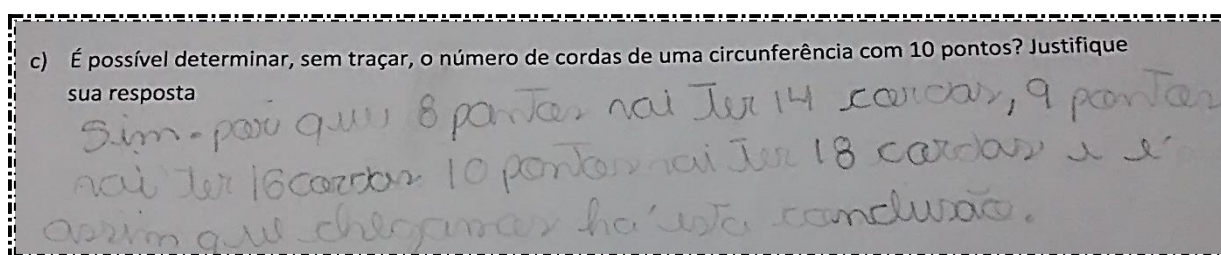 c) É possível determinar, sem traçar, o número de cordas de uma circunferência com 10 pontos? Justifique
sua resposta
Sim - por que 8 pontos vai ter 14 cordas, 9 pontos
vai ter 16 cordas 10 pontos vai ter 18 cordas e é
assim que chegamos há esta conclusão.